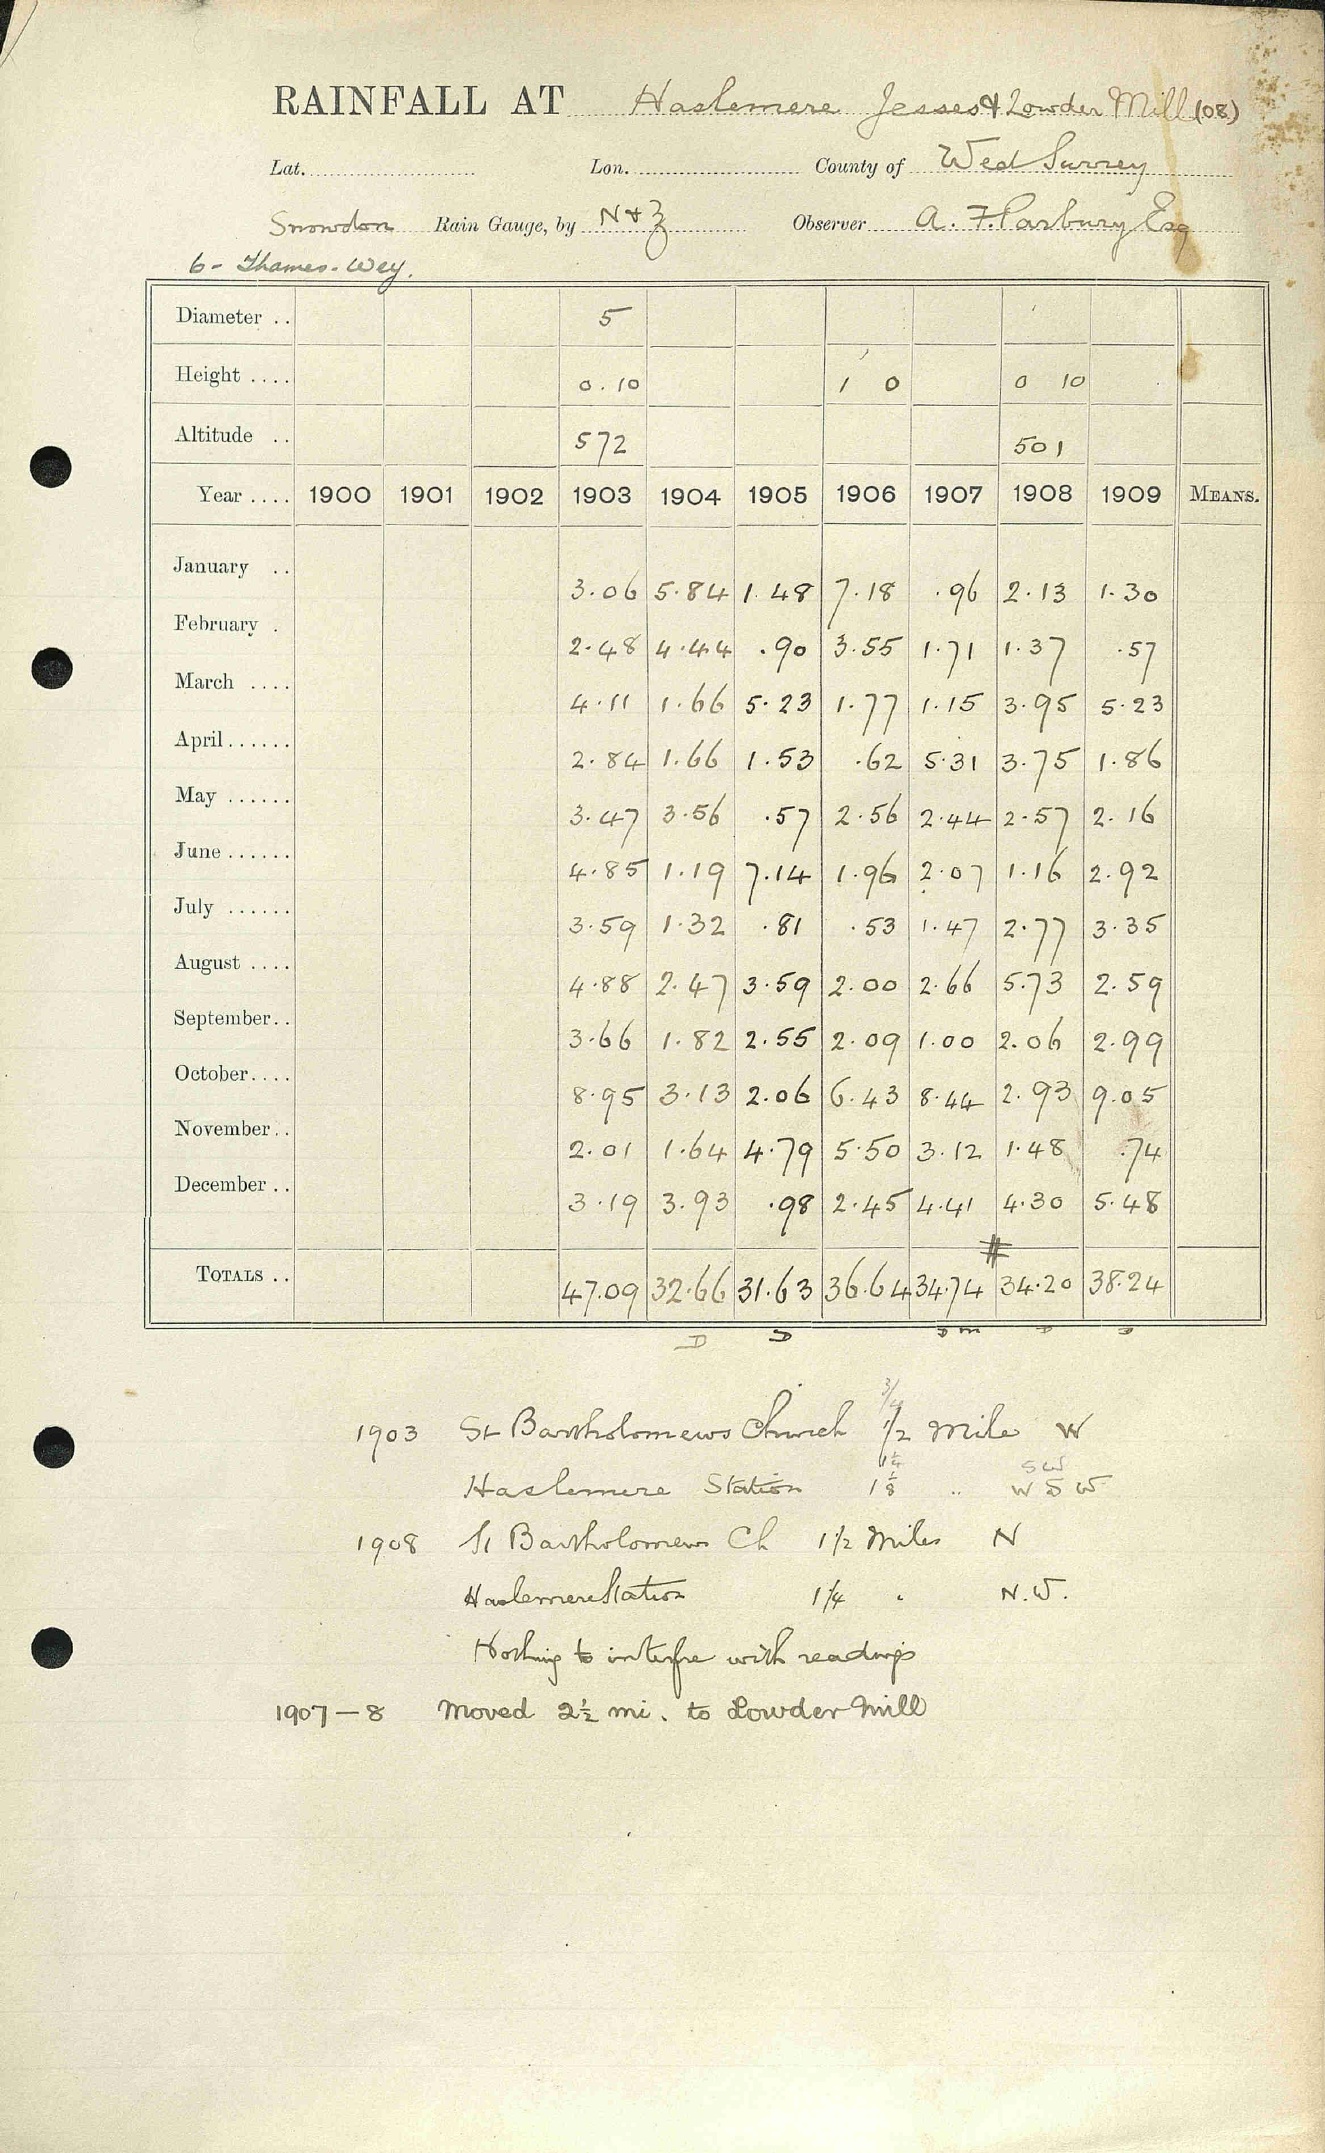 RAINFALL AT Haslemere Jesses & Lowder Mill (08)
Lat. Lon. County of Wed Surrey
Snowdon Rain Gauge, by N & Z Observer A. F. Parbury Esq
6 - Thames - Wey.
Diameter .. 5
Height .... 0.10 1 0 0 10
Altitude .. 572 501
Year .... 1900 1901 1902 1903 1904 1905 1906 1907 1908 1909 MEANS.
January .. 3.06 5.84 1.48 7.18 .96 2.13 1.30
February . 2.48 4.44 .90 3.55 1.71 1.37 .57
March .... 4.11 1.66 5.23 1.77 1.15 3.95 5.23
April ...... 2.84 1.66 1.53 .62 5.31 3.75 1.86
May ...... 3.47 3.56 .57 2.56 2.44 2.57 2.16
June ...... 4.85 1.19 7.14 1.96 2.07 1.16 2.92
July ...... 3.59 1.32 .81 .53 1.47 2.77 3.35
August .... 4.88 2.47 3.59 2.00 2.66 5.73 2.59
September .. 3.66 1.82 2.55 2.09 1.00 2.06 2.99
October .... 8.95 3.13 2.06 6.43 8.44 2.93 9.05
November .. 2.01 1.64 4.79 5.50 3.12 1.48 .74
December .. 3.19 3.93 .98 2.45 4.41 4.30 5.48
#
TOTALS .. 47.09 32.66 31.63 36.64 34.74 34.20 38.24
D D D m D D
3/4
1903 St Bartholomews Church 1/2 Mile W
1 1/4 SW
Haslemere Station 1 1/8 " W S W
1908 St Bartholomews Ch 1 1/2 Miles N
Haslemere Station 1 1/4 " N.W.
Nothing to interfre with readings
1907 - 8 Moved 2 1/2 mi. to Lowder Mill